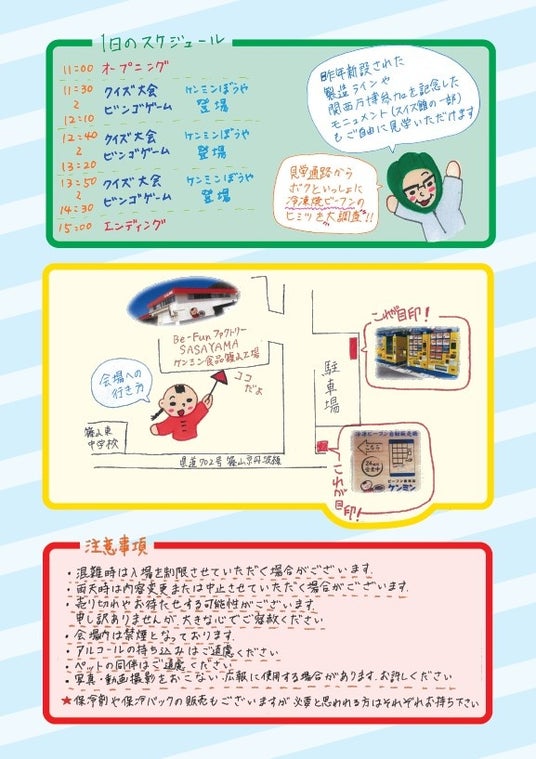 1日のスケジュール
11:00 オープニング
11:30 クイズ大会 ケンミンぼうや
~ ビンゴゲーム 登場
12:10
12:40 クイズ大会 ケンミンぼうや
~ ビンゴゲーム 登場
13:20
13:50 クイズ大会 ケンミンぼうや
~ ビンゴゲーム 登場
14:30
15:00 エンディング
昨年新設された
製造ラインや
関西万博参加を記念した
モニュメント(スイス館の一部)
もご自由に見学いただけます
見学通路から
ボクといっしょに
冷凍焼ビーフンの
ヒミツを大調査!!
Be-Funファクトリー
SASAYAMA
ケンミン食品篠山工場
ココ
だよ
会場への
行き方
篠山東
中学校
県道702号 篠山京丹波線
駐車場
これが目印!
冷凍ビーフン自動販売機
こちら
24時間
営業中
ケンミン
これが目印!
注意事項
・混雑時は入場を制限させていただく場合がございます.
・雨天時は内容変更または中止させていただく場合がございます.
・売り切れやお待たせする可能性がございます
申し訳ありませんが 大きな心でご容赦ください
・会場内は禁煙となっております.
・アルコールの持ち込みはご遠慮ください
・ペットの同伴はご遠慮ください
・写真・動画撮影をおこない 広報に使用する場合があります.お許しください
★保冷剤や保冷バックの販売もございますが 必要と思われる方はそれぞれお持ち下さい